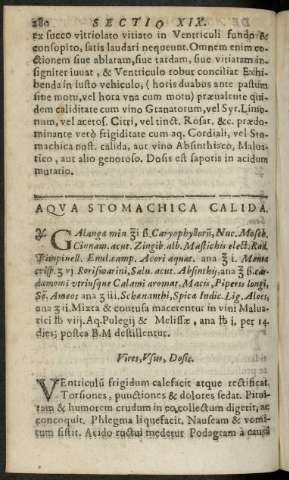 280 SECTIO XIX.
ex succo vittiolato vitiato in Ventriculi fundo &
consopito, satis laudari nequeunt. Omnem enim co-
ctionem siue ablatam, siue tardam, siue vitiatam in-
signiter iuuat, & Ventriculo robur conciliat Exhi-
benda in iusto vehiculo, (horis duabus ante pastum
sine motu, vel hora vna cum motu) præualente qui-
dem caliditate cum vino Granatorum, vel Syr. Limo-
num, vel acetos. Citri, vel tinct. Rosar. &c. prædo-
minante verò frigiditate cum aq. Cordiali, vel Sto-
machica nost. calida, aut vino Absinthiaco, Malua-
tico, aut alio generoso. Dosis est saporis in acidum
mutatio.
AQVA STOMACHICA CALIDA.
℞. GAlanga min ʒi ß. Caryophyllorū, Nuc. Mosch.
Cinnam. acut. Zingib. alb. Mastichis elect. Rad.
Pimpinell. Enul. camp. Acori aquat. ana ʒ i. Menta
crisp. ʒ vj Rorismarini, Salu. acut. Absinthij, ana ʒ ß. car-
damomi vtriusque Calami aromat. Macis, Piperis longi,
Sē. Ameos ana ʒ iii. Schœnanthi, Spica Indic. Lig. Aloes,
ana ʒ ii. Mixta & contusa macerentur in vini Malua-
tici ℔ viij. Aq. Pulegij & Melissæ, ana ℔ i. per 14.
dies; postea B.M destillentur.
Vires, Vsus, Dosis.
VEntriculū frigidum calefacit atque rectificat.
Torsiones, punctiones & dolores sedat. Pitui-
tam & humorem crudum in eo collectum digerit, ac
concoquit. Phlegma liquefacit. Nauseam & vomi-
tum sistit. Acido ructui medetur Podagram à causa